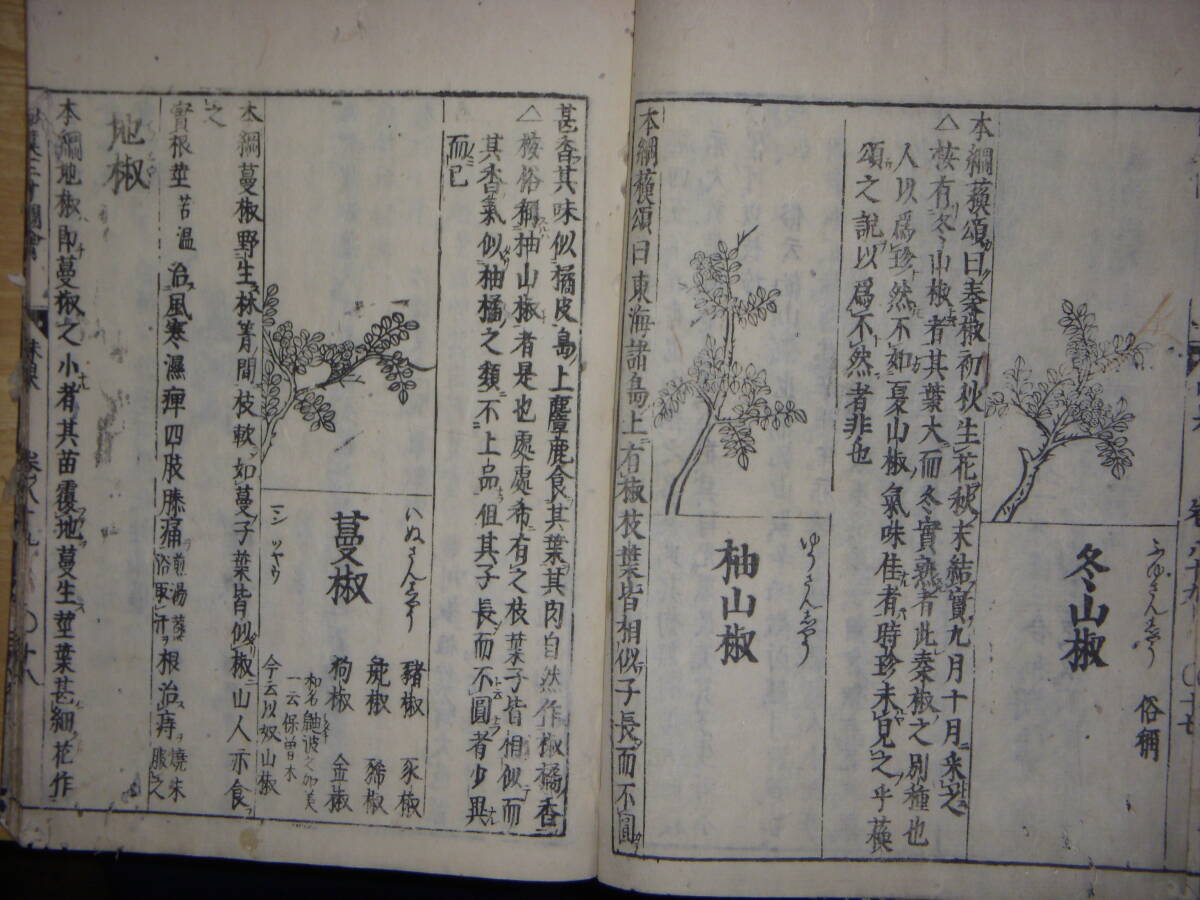 冬山椒
ふゆさんせう
俗稱
本綱蘓頌曰秦椒初秋生花秋末結實九月十月采之
△桉有冬山椒者其葉大而冬實熟者此秦椒之別種也
人以爲珍然不如夏山椒氣味佳者時珍未見之乎蘓
頌之說以爲不然者非也
柚山椒
ゆうさんせう
本綱蘓頌曰東海諸島上有椒枝葉皆相似子長而不圓
甚香其味似橘皮島上麞鹿食其葉其肉自然作椒橘香
△桉俗稱柚山椒者是也處處希有之枝葉子皆相似而
其香氣似柚橘之類不上品但其子長而不圓者少異
而已
蔓椒
いぬさんせう
マンツヤウ
豬椒 豕椒
彘椒 豨椒
狗椒 金椒
一云保曽木
今云以奴山椒
本綱蔓椒野生林箐間枝軟如蔓子葉皆似椒山人亦食
之
實根莖苦温治風寒濕痺四肢膝痛煎湯蒸浴取汁根治痔燒末服之
地椒
本綱地椒即蔓椒之小者其苗覆地蔓生莖葉甚細花作